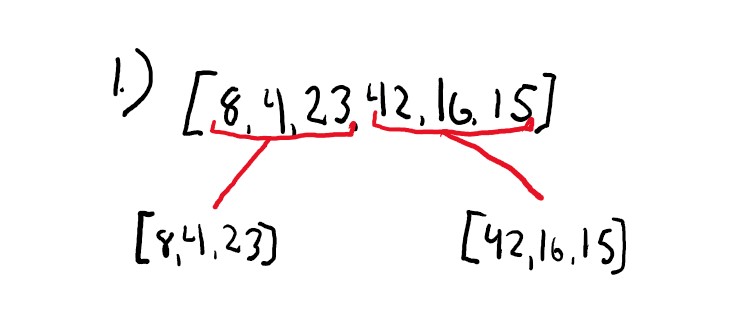 1.) [8,4,23,42,16,15]
[8,4,23] [42,16,15]